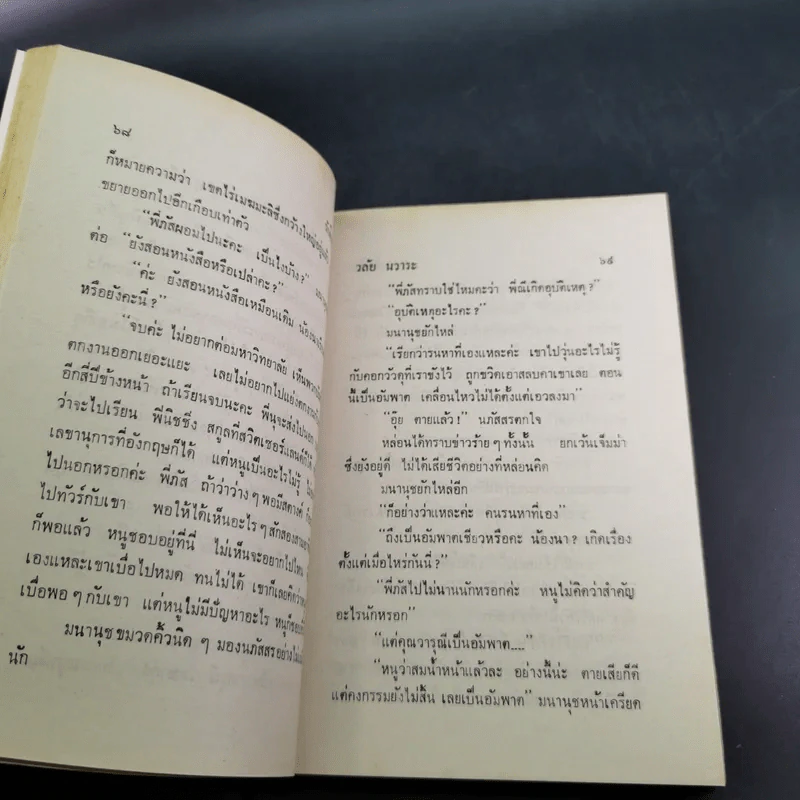 ๖๘
ก็หมายความว่า เขตไร่เมฆมะลิซึ่งกว้างใหญ่
ขยายออกไปอีกเกือบเท่าตัว
"พี่ภัสผอมไปนะคะ เป็นไงบ้าง?"
ต่อ "ยังสอนหนังสือหรือเปล่าคะ?"
"ค่ะ ยังสอนหนังสือเหมือนเดิม
หรือยังคะนี่?"
"จบค่ะ ไม่อยากต่อมหาวิทยาลัย
ตกงานออกเยอะแยะ เลยไม่อยากไปแย่ง
อีกสี่ปีข้างหน้า ถ้าเรียนจบนะคะ พี่นุจะส่งไป
ว่าจะไปเรียน พี่นิชชิ่ง สกูลที่สวิตเซอร์แลนด์ก็ได้
เลขานุการที่อังกฤษก็ได้ แต่หนูเป็นอะไรไม่รู้
ไปนอกหรอกค่ะ พี่ภัส ถ้าว่างๆ พอมีสตางค์
ไปทัวร์กับเขา พอให้ได้เห็นอะไรๆ สักสอง
ก็พอแล้ว หนูชอบอยู่ที่นี่ ไม่เห็นจะอยากไปไหน
เองแหละเขาเบื่อไปหมด ทนไม่ได้ เขาก็เลยคิดว่า
เบื่อพอๆ กับเขา แต่หนูไม่มีปัญหาอะไร
มนานุชขมวดคิ้วนิดๆ มองนภัสสรอย่าง
นัก
วลัย นวาระ ๖๙
"พี่ภัสทราบใช่ไหมคะว่า พี่ณีเกิดอุบัติเหตุ?"
"อุบัติเหตุอะไรคะ?"
มนานุชยักไหล่
"เรียกว่ารนหาที่เองแหละค่ะ เขาไปวุ่นอะไรไม่รู้
กับคอกวัวดุที่เราขังไว้ ถูกขวิดเอาสลบคาเขาเลย ตอน
นี้เป็นอัมพาต เคลื่อนไหวไม่ได้ตั้งแต่เอวลงมา"
"อุ๊ย ตายแล้ว!" นภัสสรตกใจ
หล่อนได้ทราบข่าวร้ายๆ ทั้งนั้น ยกเว้นเจ็มม่า
ซึ่งยังอยู่ดี ไม่ได้เสียชีวิตอย่างที่หล่อนคิด
มนานุชยักไหล่อีก
"ก็อย่างว่าแหละค่ะ คนรนหาที่เอง"
"ถึงเป็นอัมพาตเชียวหรือคะ น้องนา? เกิดเรื่อง
ตั้งแต่เมื่อไหร่กันนี่?"
"พี่ภัสไปไม่นานนักหรอกค่ะ หนูไม่คิดว่าสำคัญ
อะไรนักหรอก"
"แต่คุณวารุณีเป็นอัมพาต...."
"หนูว่าสมน้ำหน้าแล้วละ อย่างนี้น่ะ ตายเสียก็ดี
แต่คงกรรมยังไม่สิ้น เลยเป็นอัมพาต" มนานุชหน้าเครียด